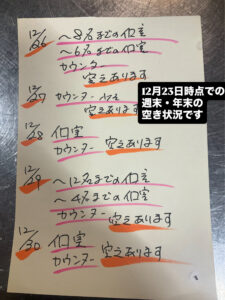 12月23日時点での
週末・年末の
空き状況です
12/26 〜8名までの個室
〜6名までの個室
カウンター
空きあります
12/27 カウンター
空きあります
12/28 個室 空きあります
12/29 〜12名までの個室
〜4名までの個室
カウンター 空きあります
12/30 個室
カウンター 空きあります